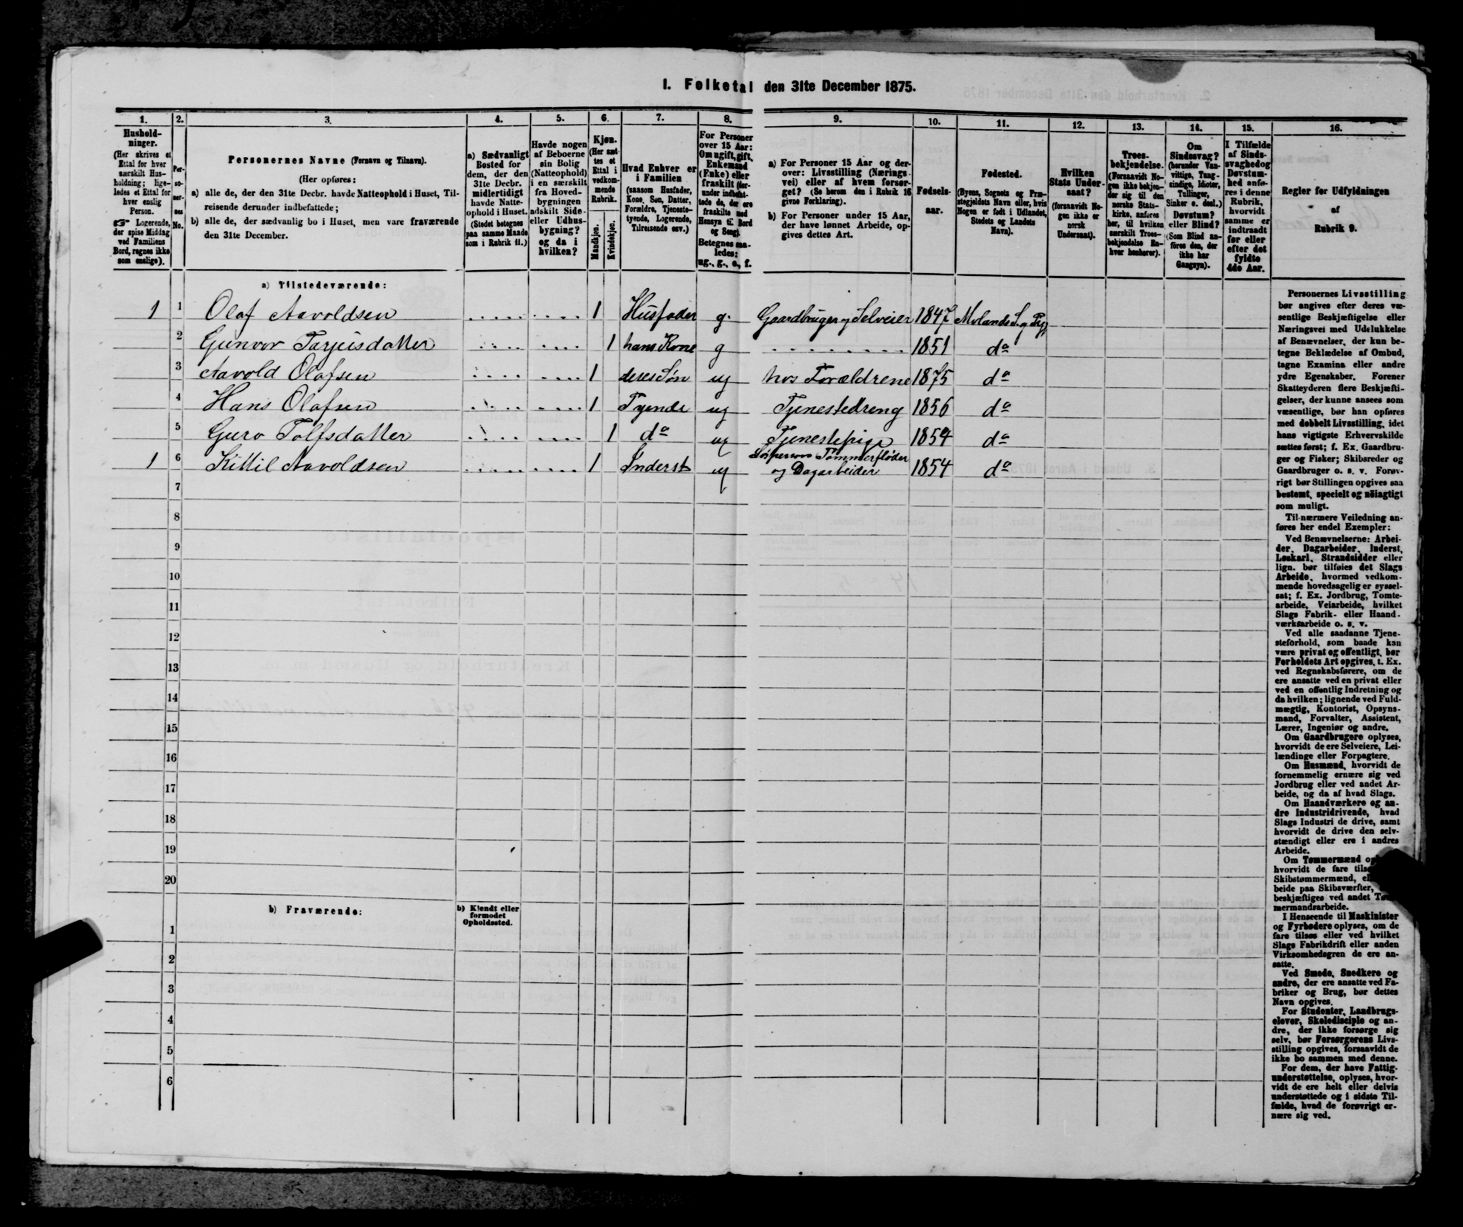 1. Folketal den 31te December 1875.
1. 2. 3. 4. 5. 6. 7. 8. 9. 10. 11. 12. 13. 14. 15. 16.
Hushold-
ninger.
(Her skrives et
Ettal for hver
særskilt Hus-
holdning; lige-
ledes et Ettal for
hver enslig
Person.
☞ Logerende,
der spise Middag
ved Familiens
Bord, regnes ikke
som enslige).
Per-
so-
ner-
nes
No.
Personernes Navne (Fornavn og Tilnavn).
(Her opføres:
a) alle de, der den 31te Decbr. havde Natteophold i Huset, Til-
reisende derunder indbefattede;
b) alle de, der sædvanlig bo i Huset, men vare fraværende
den 31te December.
a) Sædvanligt
Bosted for
dem, der den
31te Decbr.
midlertidigt
havde Natte-
ophold i Huset.
(Stedet betegnes
paa samme Maade
som i Rubrik 11.)
Havde nogen
af Beboerne
sin Bolig
(Natteophold)
i en særskilt
fra Hoved-
bygningen
adskilt Side-
eller Udhus-
bygning?
og da i
hvilken?
Kjøn.
(Her sæt-
tes et
Ettal i
vedkom-
mende
Rubrik.
Mandkjøn.
Kvindekjøn.
Hvad Enhver er
i Familien
(saasom Husfader,
Kone, Søn, Datter,
Forældre, Tjeneste-
tyende, Logerende,
Tilreisende osv.)
For Personer
over 15 Aar:
Om ugift, gift,
Enkemand
(Enke) eller
fraskilt (der-
under indbefat-
tede de, der ere
fraskilte med
Hensyn til Bord
og Seng).
Betegnes saa-
ledes:
ug., g., e., f.
a) For Personer 15 Aar og der-
over: Livsstilling (Nærings-
vei) eller af hvem forsør-
get? (Se herom den i Rubrik 16
givne Forklaring).
b) For Personer under 15 Aar,
der have lønnet Arbeide, op-
gives dettes Art.
Fødsels-
aar.
Fødested.
(Byens, Sognets og Præ-
stegjeldets Navn eller, hvis
Nogen er født i Udlandet,
Stedets og Landets
Navn).
Hvilken
Stats Under-
saat?
(forsaavidt No-
gen ikke er
norsk
Undersaat).
Troes-
bekjendelse.
(Forsaavidt No-
gen ikke bekjen-
der sig til den
norske Stats-
kirke, anføres
her, til hvilken
særskilt Troes-
bekjendelse En-
hver henhører).
Om
Sindssvag?
(herunder Van-
vittige, Tung-
sindige, Idioter,
Tullinger,
Sinker o. desl.)
Døvstum?
eller Blind?
(Som Blind an-
føres den, der
ikke har
Gangsyn).
I Tilfælde
af Sinds-
svaghed og
Døvstum-
hed anfø-
res i denne
Rubrik,
hvorvidt
samme er
indtraadt
før eller
efter det
fyldte
4de Aar.
Regler for Udfyldningen
af
Rubrik 9.
a) Tilstedeværende:
1 1 Olaf Aavoldsen 1 Husfader g. Gaardbruger og Selveier 1847 Molands S. og Prgj
2 Gunvor Tarjusdatter 1 hans Kone g 1851 do
3 Aavold Olafsen 1 deres Søn ug hos Forældrene 1875 do
4 Hans Olafsen 1 Tyende ug Tjenestedreng 1856 do
5 Guro Tolfsdatter 1 do ug Tjenestepige 1859 do
1 6 Kittil Aavoldsen 1 Inderst ug Tømmerfløder
og Dagarbeider 1854 do
7
8
9
10
11
12
13
14
15
16
17
18
19
20
b) Fraværende:
b) Kjendt eller
formodet
Opholdssted.
1
2
3
4
5
6
Personernes Livsstilling
bør angives efter deres væ-
sentlige Beskjæftigelse eller
Næringsvei med Udelukkelse
af Benævnelser, der kun be-
tegne Beklædelse af Ombud,
tagne Examina eller andre
ydre Egenskaber. Forener
Skatteyderen flere Beskjæfti-
gelser, der kunne ansees som
væsentlige, bør han opføres
med dobbelt Livsstilling, idet
hans vigtigste Erhvervskilde
sættes først; f. Ex. Gaardbru-
ger og Fisker; Skibsreder og
Gaardbruger o. s. v. Forøv-
rigt bør Stillingen opgives saa
bestemt, specielt og nøiagtigt
som muligt.
Til nærmere Veiledning an-
føres her endel Exempler:
Ved Benævnelserne: Arbei-
der, Dagarbeider, Inderst,
Løskarl, Strandsidder eller
lign. bør tilføies det Slags
Arbeide, hvormed vedkom-
mende hovedsagelig er syssel-
sat; f. Ex. Jordbrug, Tomte-
arbeide, Veiarbeide, hvilket
Slags Fabrik- eller Haand-
værksarbeide o. s. v.
Ved alle saadanne Tjene-
steforhold, som baade kan
være privat og offentligt, bør
Forholdets Art opgives, t. Ex.
ved Regnskabsførere, om de
ere ansatte ved en privat eller
ved en offentlig Indretning og
da hvilken; lignende ved Fuld-
mægtig, Kontorist, Opsyns-
mand, Forvalter, Assistent,
Lærer, Ingeniør og andre.
Om Gaardbrugere oplyses,
hvorvidt de ere Selveiere, Lei-
lændinge eller Forpagtere.
Om Husmænd, hvorvidt de
fornemmelig ernære sig ved
Jordbrug eller ved andet Ar-
beide, og da af hvad Slags.
Om Haandværkere og an-
dre Industridrivende, hvad
Slags Industri de drive, samt
hvorvidt de drive den selv-
stændigt eller ere i andres
Arbeide.
Om Tømmermænd
hvorvidt de fare
Skibstømmermænd,
beide paa Skibsværfter,
beskjæftiges ved andet Tøm-
mermandsarbeide.
I Henseende til Maskinister
og Fyrbødere oplyses, om de
fare tilsøs eller ved hvilket
Slags Fabrikdrift eller anden
Virksomhedsgren de ere an-
satte.
Ved Smede, Snedkere og
andre, der ere ansatte ved Fa-
briker og Brug, bør dettes
Navn opgives.
For Studenter, Landbrugs-
elever, Skoledisciple og an-
dre, der ikke forsørge sig
selv, bør Forsørgerens Livs-
stilling opgives, forsaavidt de
ikke bo sammen med denne.
For dem, der have Fattig-
understøttelse, oplyses, hvor-
vidt de ere helt eller delvis
understøttede og i sidste Til-
fælde, hvad de forøvrigt er-
nære sig ved.